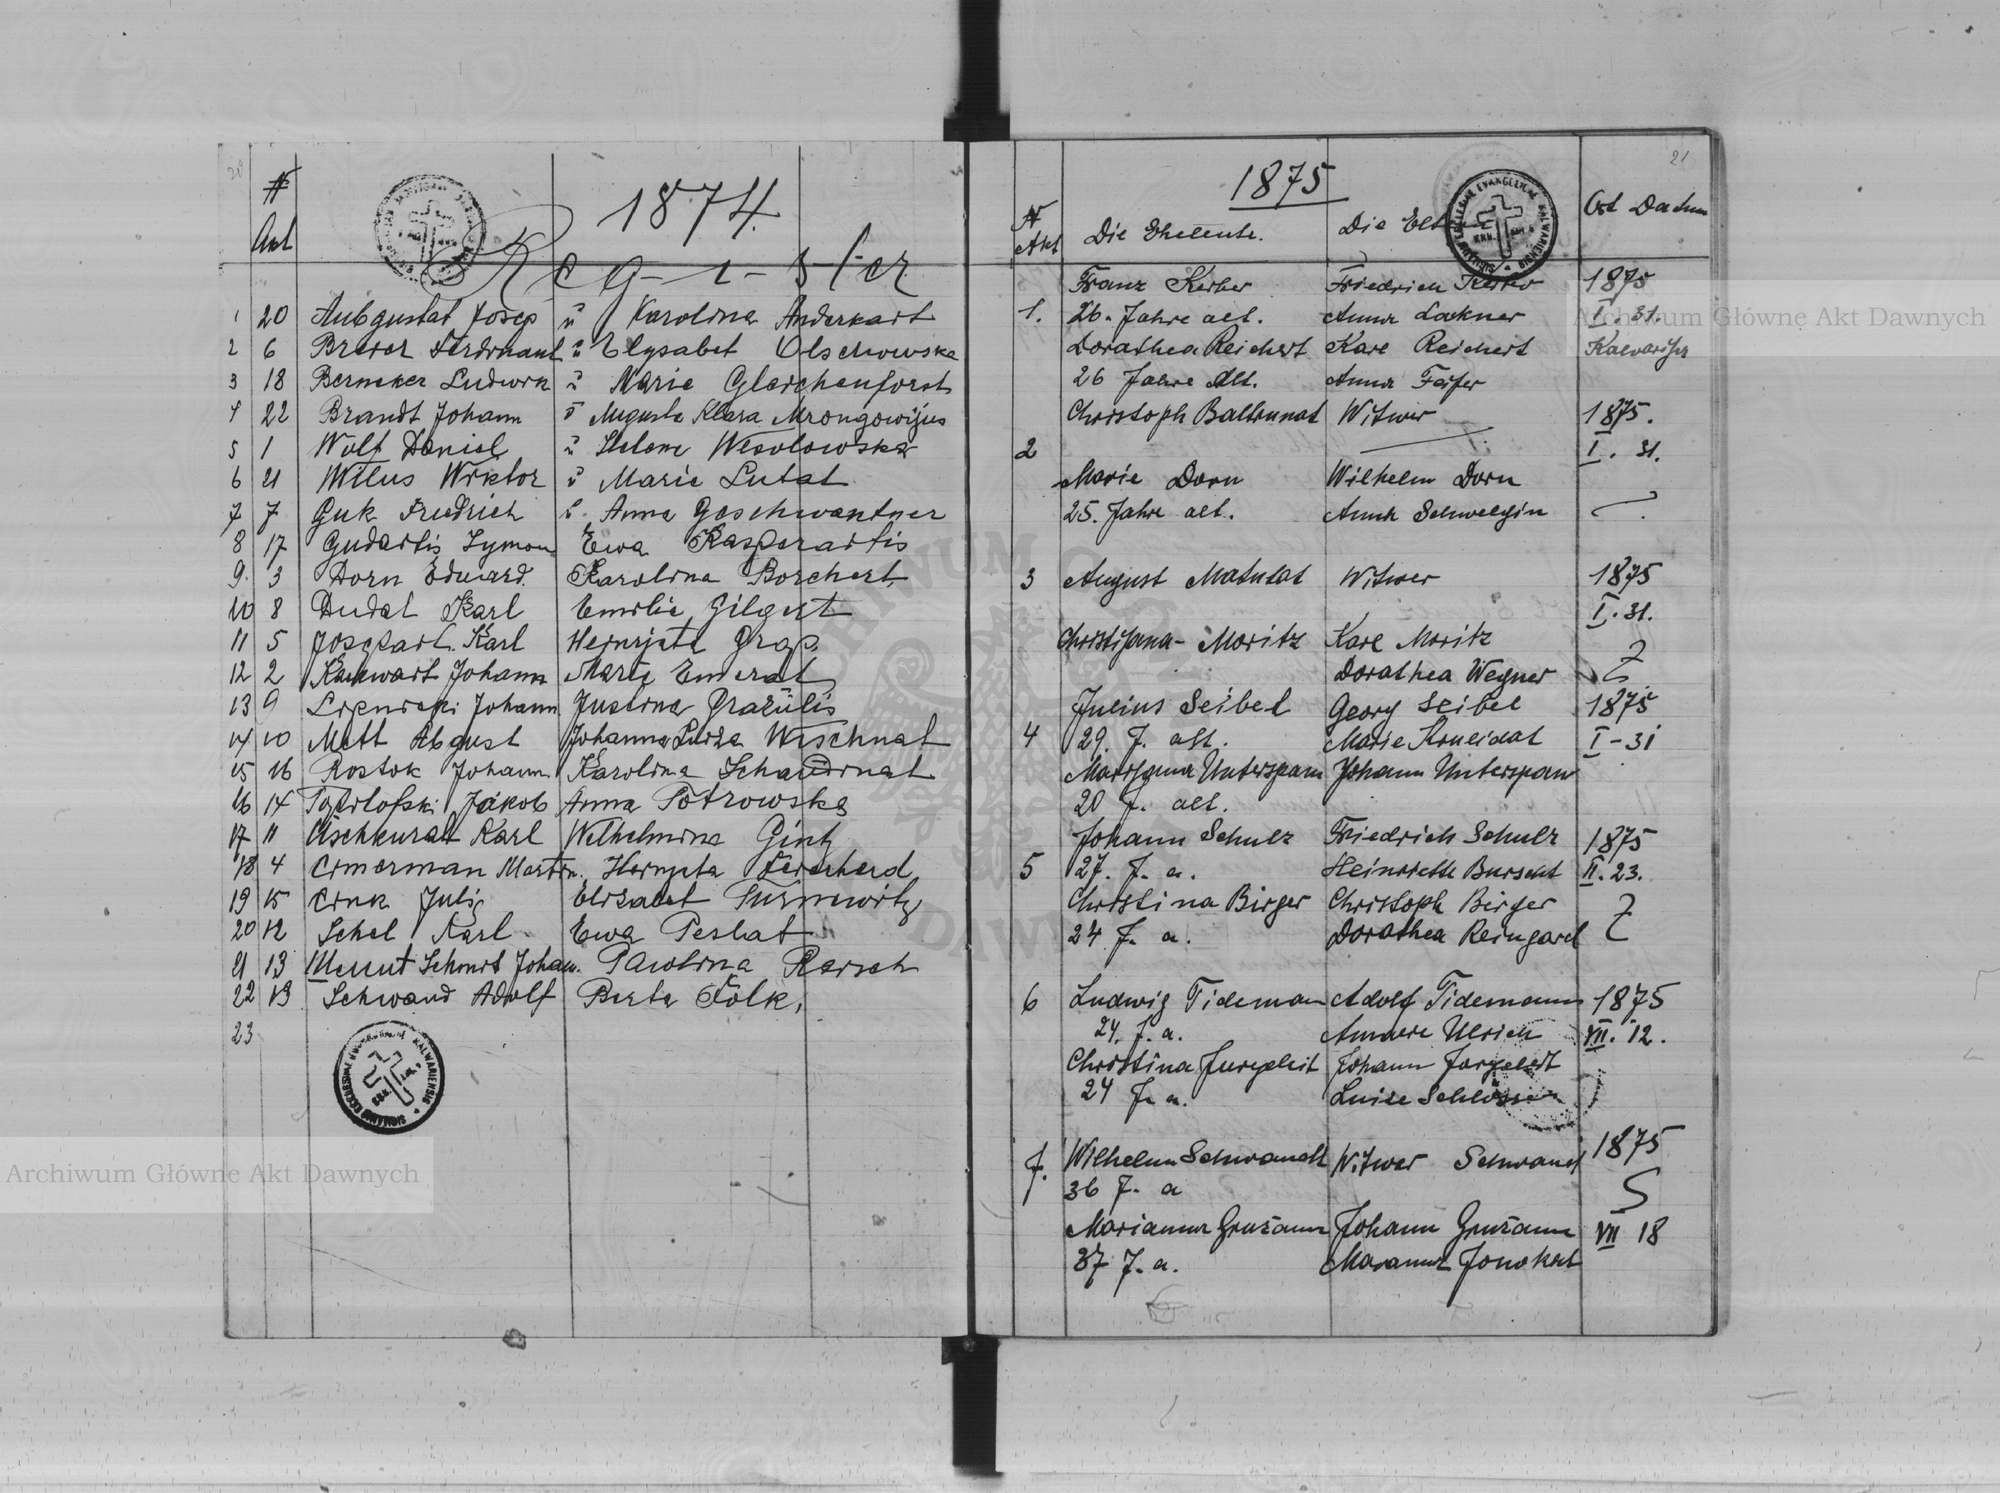 20
№
Akt
1874.
Register
1 20 Aubgustat Josep u Karolina Anderkart
2 6 Brever Ferdinant u Elysabet Olschowska
3 18 Berneker Ludwik u Marie Glerchenforst
4 22 Brandt Johann u Augusta Klara Mrongowijus
5 1 Wolf Daniel u Helene Wesolowska
6 21 Witus Wiktor u Marie Lutat
7 7 Guk Friedrich u. Anna Goschwantner
8 17 Gudartis Symon Ewa Kasperaitis
9. 3 Dorn Eduard. Karolina Borchert
10 8 Dudat Karl Emilie Gilgert
11 5 Karl Hernrjeta Grap.
12 2 Kankwart Johann Marte Emerat
13 9 Johann Justina Grazulis
14 10 Mett August Johanna Luiza Weschnat
15 16 Rostok Johann Karolina Schardinat
16 14 Jakob Anna Potrowska
17 11 Karl Wilhelmina Gintz
18 4 Cimerman Martin. Hernjeta Feierherd
19 15 Cink Julis Elisabet Turnewitz
20 12 Schel Karl Ewa Peslat
21 13 Schmit Johan. Paulina Reisch
22 19 Schwand Adolf Berta Folk.
23
Archiwum Główne Akt Dawnych
21
1875
№ Akt Die Eheleute. Die Elt Ort Datum
Franz Kerber Friedrich Kerber 1875
1. 26. Jahre alt. Anna Lackner I. 31.
Dorathea Reichert Karl Reichert Kalvarija
26 Jahre alt. Anna Feifer
Christoph Baltrunat Witwer 1875.
2 I. 31.
Marie Dorn Wilhelm Dorn
25. Jahre alt. Anna Schwelgin
3 August Matutat Witwer 1875
I. 31.
Christijana Moritz Karl Moritz
Dorathea Wegner
Julius Seibel Georg Seibel 1875
4 29. J. alt. Marie Kneidat I-31
Marijana Unterspan Johann Unterspan
20 J. alt.
Johann Schulz Friedrich Schulz 1875
5 27. J. a. Heinriette II. 23.
Christina Birger Christoph Birger
24 J. a. Dorathea Reingard
6 Ludwig Tideman Adolf Tidemann 1875
24. J. a. Annere Ulrich VII. 12.
Christina Jurgeleit Johann Jorgeleit
24 J. a. Luise
7. Wilhelm Schwandt Witwer Schwand 1875
36 J. a
Marianna Gruzann Johann Gruzann VII 18
37 J. a. Maranna Jonokeit
Archiwum Główne Akt Dawnych